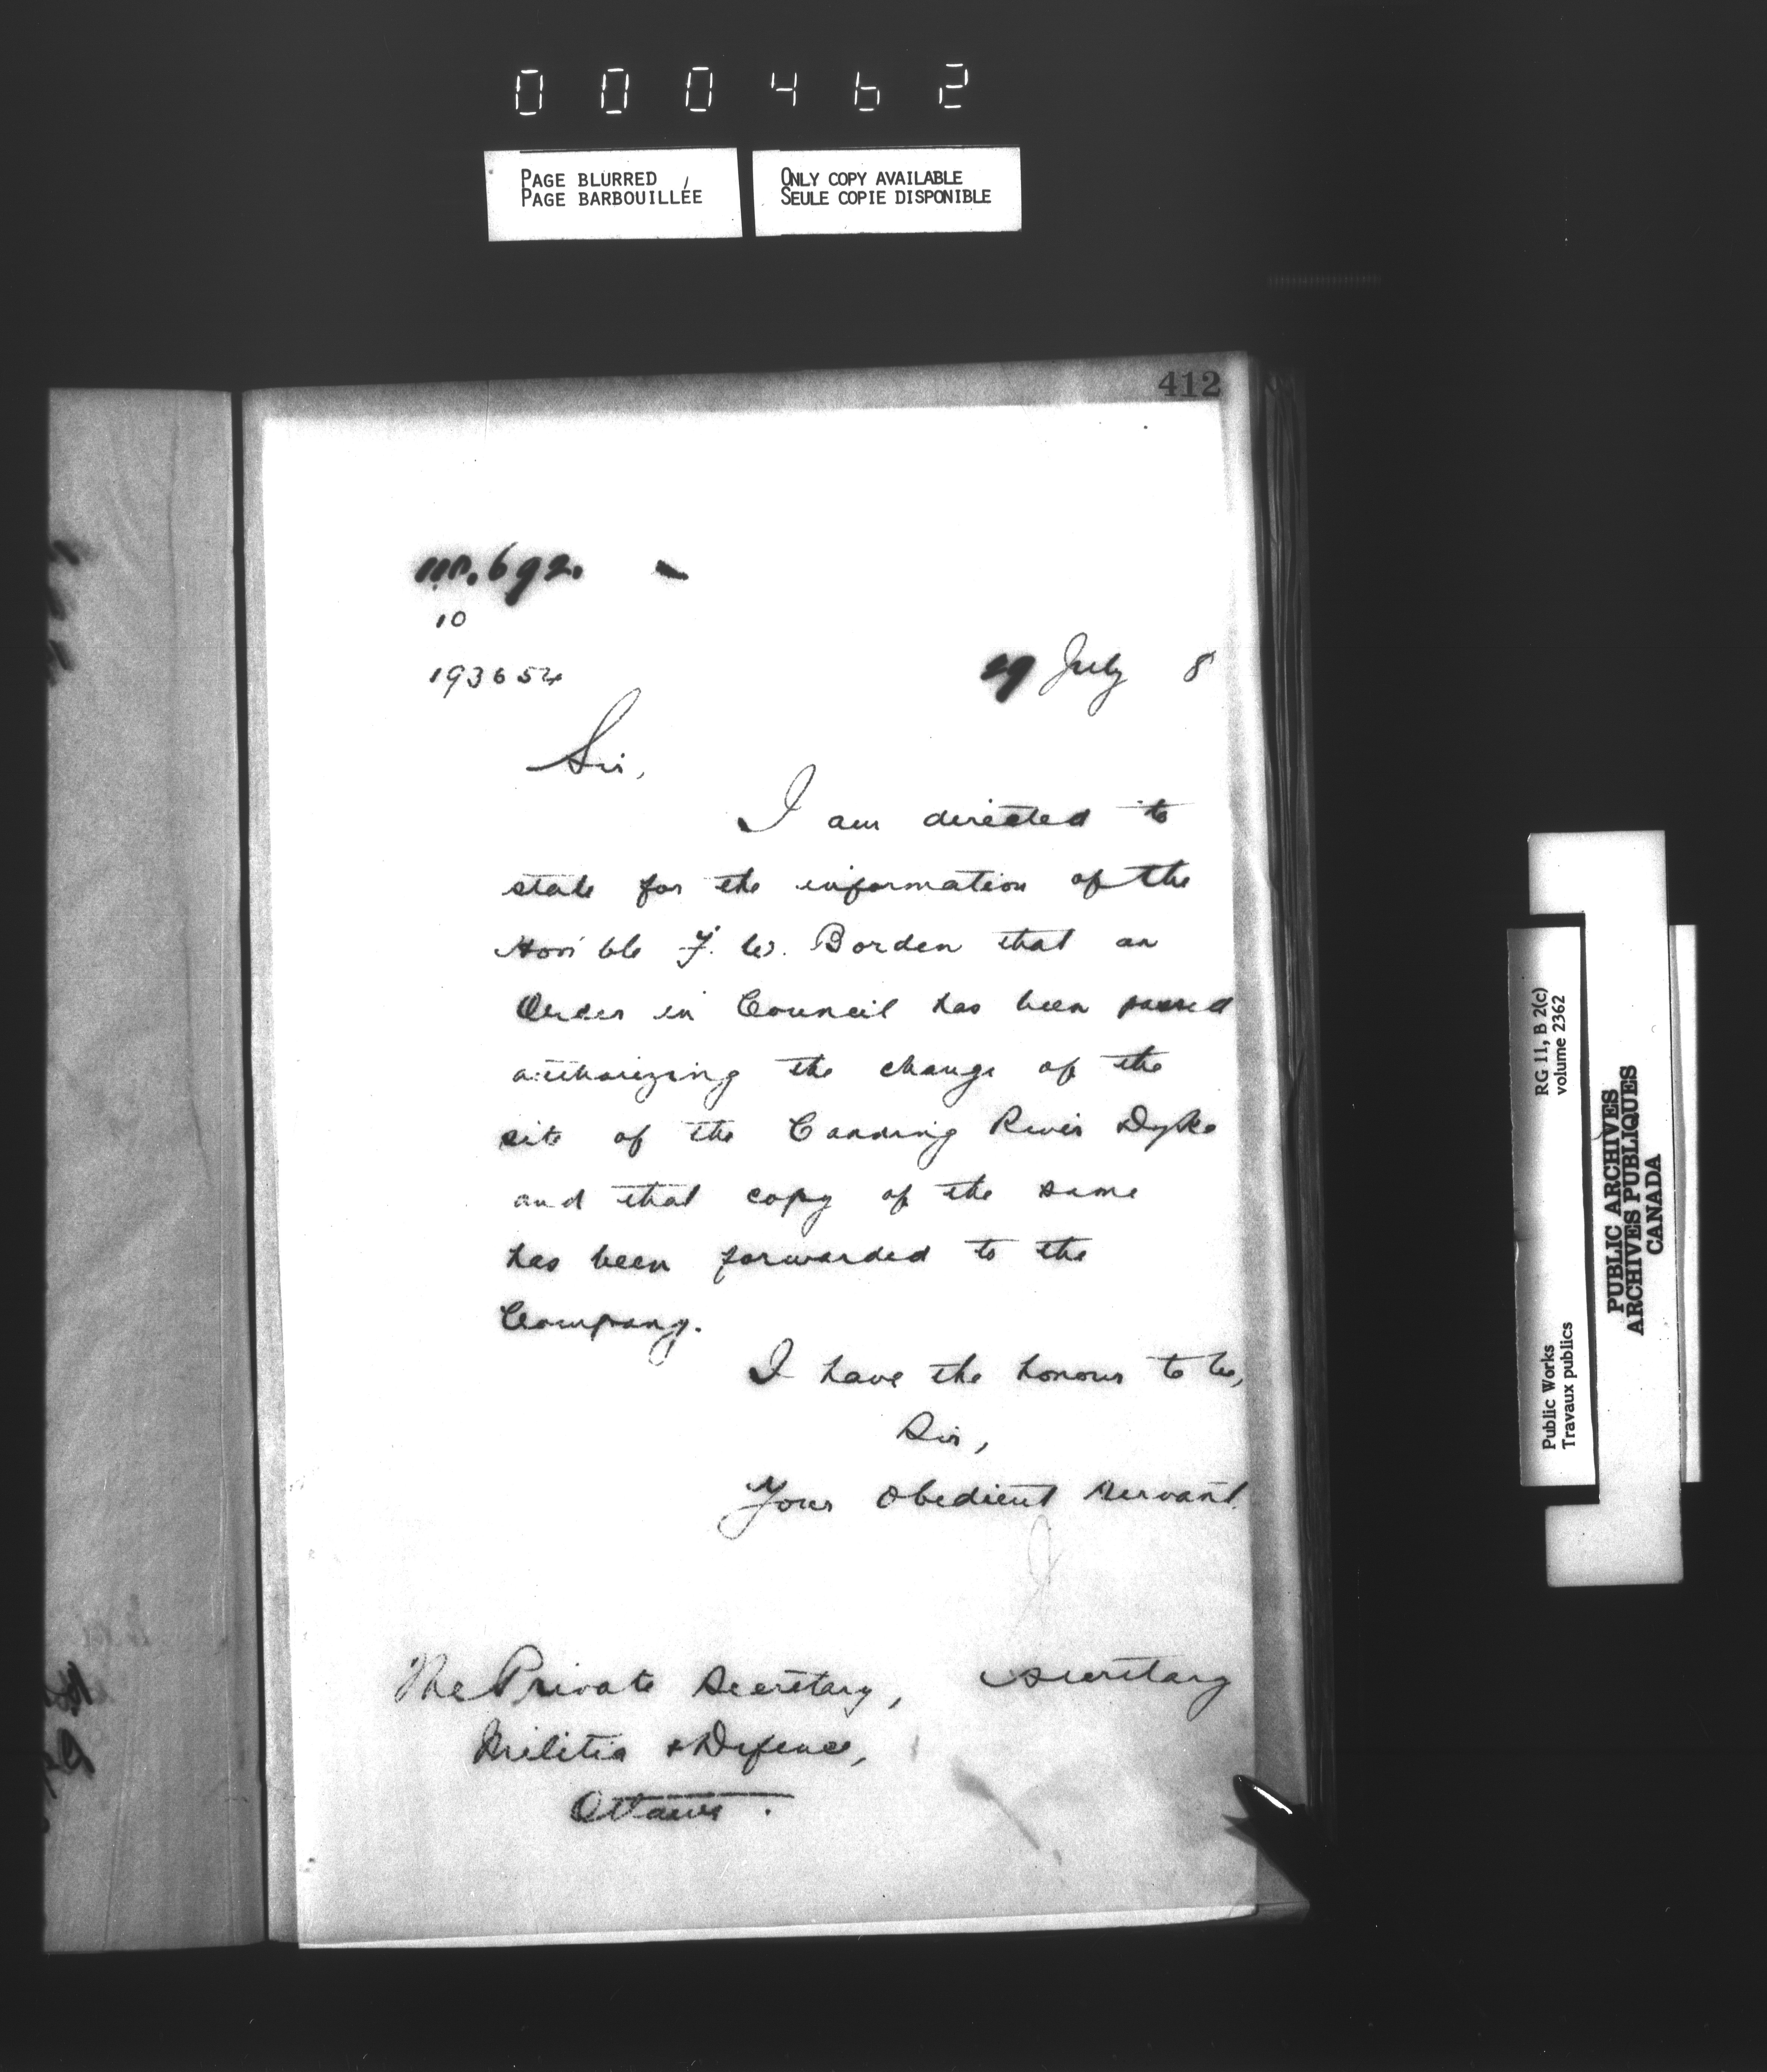 000462
PAGE BLURRED
PAGE BARBOUILLÉE
ONLY COPY AVAILABLE
SEULE COPIE DISPONIBLE
412
No. 692.
10
193654
29 July 8
Sir,
I am directed to
state for the information of the
Hon'ble F. W. Borden that an
Order in Council has been passed
authorizing the change of the
site of the Canning River Dyke
and that copy of the same
has been forwarded to the
Company.
I have the honour to be,
Sir,
Your obedient servant.
Secretary
The Private Secretary,
Militia & Defence,
Ottawa.
Public Works
Travaux publics
RG 11, B 2(c)
volume 2362
PUBLIC ARCHIVES
ARCHIVES PUBLIQUES
CANADA